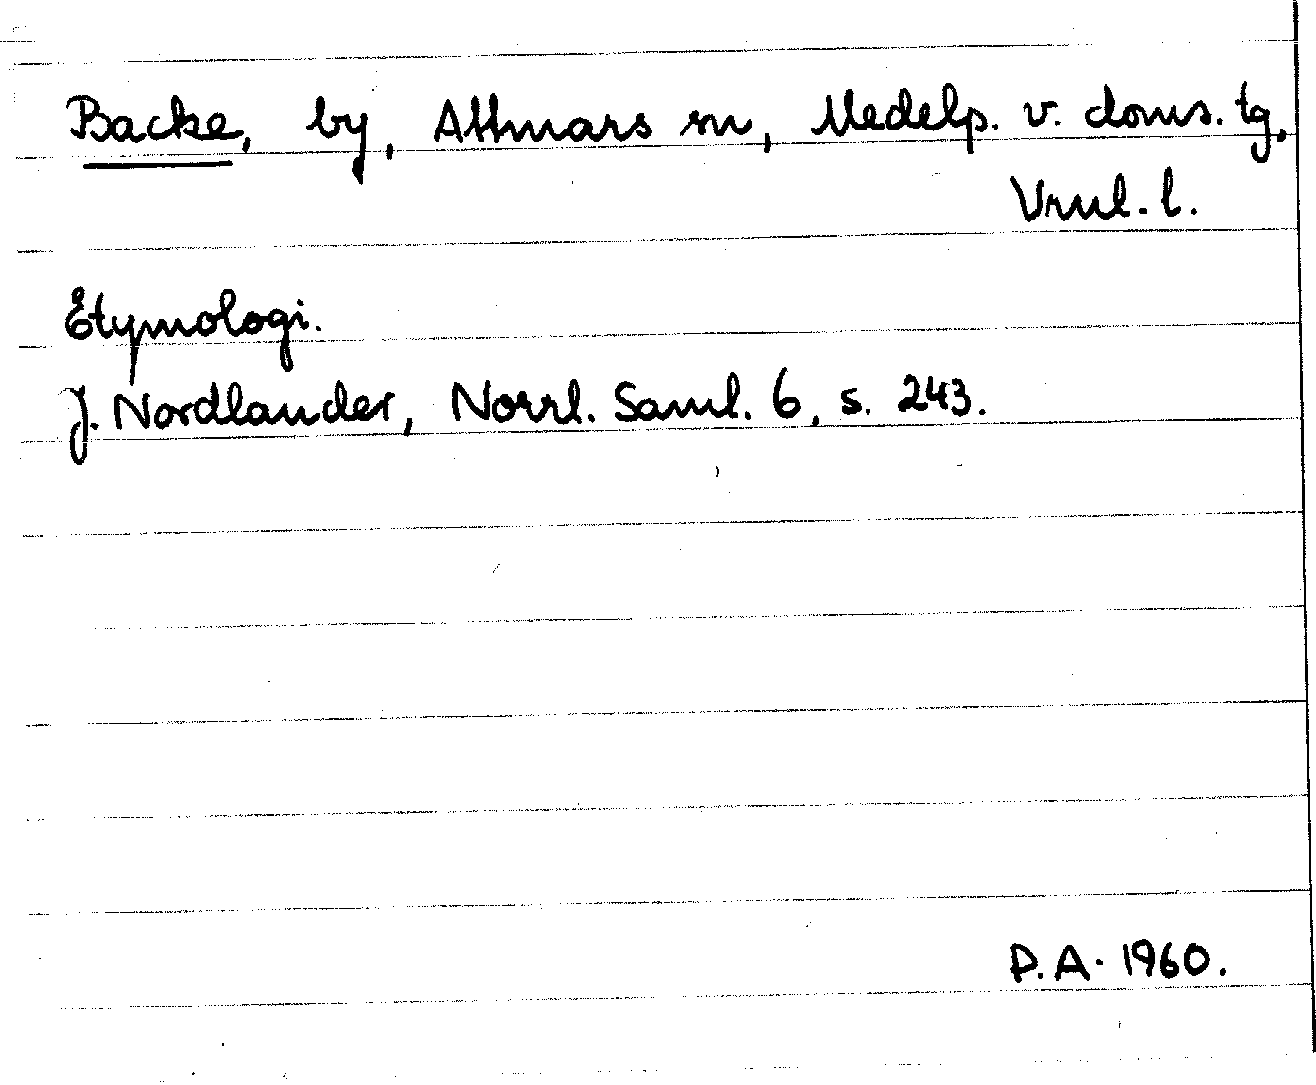 Backe, by, Attmars sn, Medelp. v. doms. tg,
Vrnl. l.
Etymologi.
J. Nordlander, Norrl. Saml. 6, s. 243.
P.A. 1960.